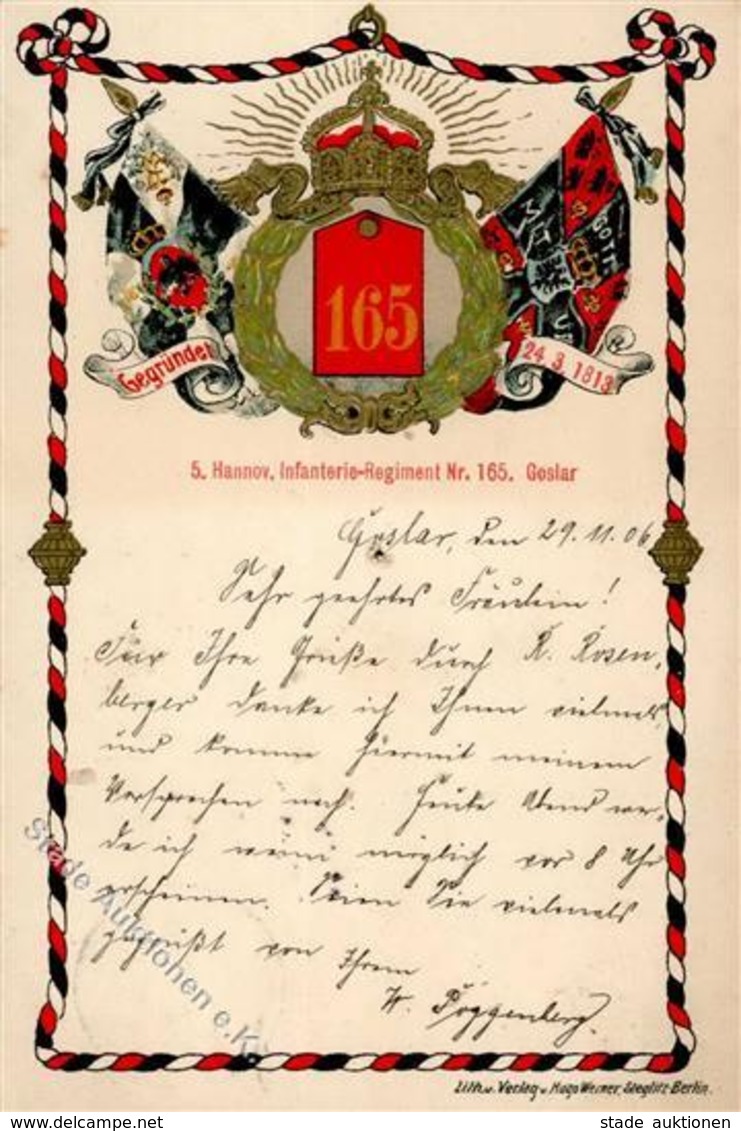 165
MIT
GOTT
Gegründet
24. 3. 1813
5. Hannov. Infanterie-Regiment Nr. 165. Goslar
Goslar, den 29. 11. 06
Sehr geehrtes Fräulein!
Für Ihre Grüße durch R. Rosen-
berger danke ich Ihnen vielmals
und komme hiermit meinem
Versprechen nach. Heute Abend wer-
de ich wenn möglich vor 8 Uhr
erscheinen. Seien Sie vielmals
gegrüßt von Ihrem
W. Poggenberg.
Stade Auktionen e.K.
Lith. u. Verlag v. Hugo Werner, Steglitz-Berlin.
www.delcampe.net
stade auktionen